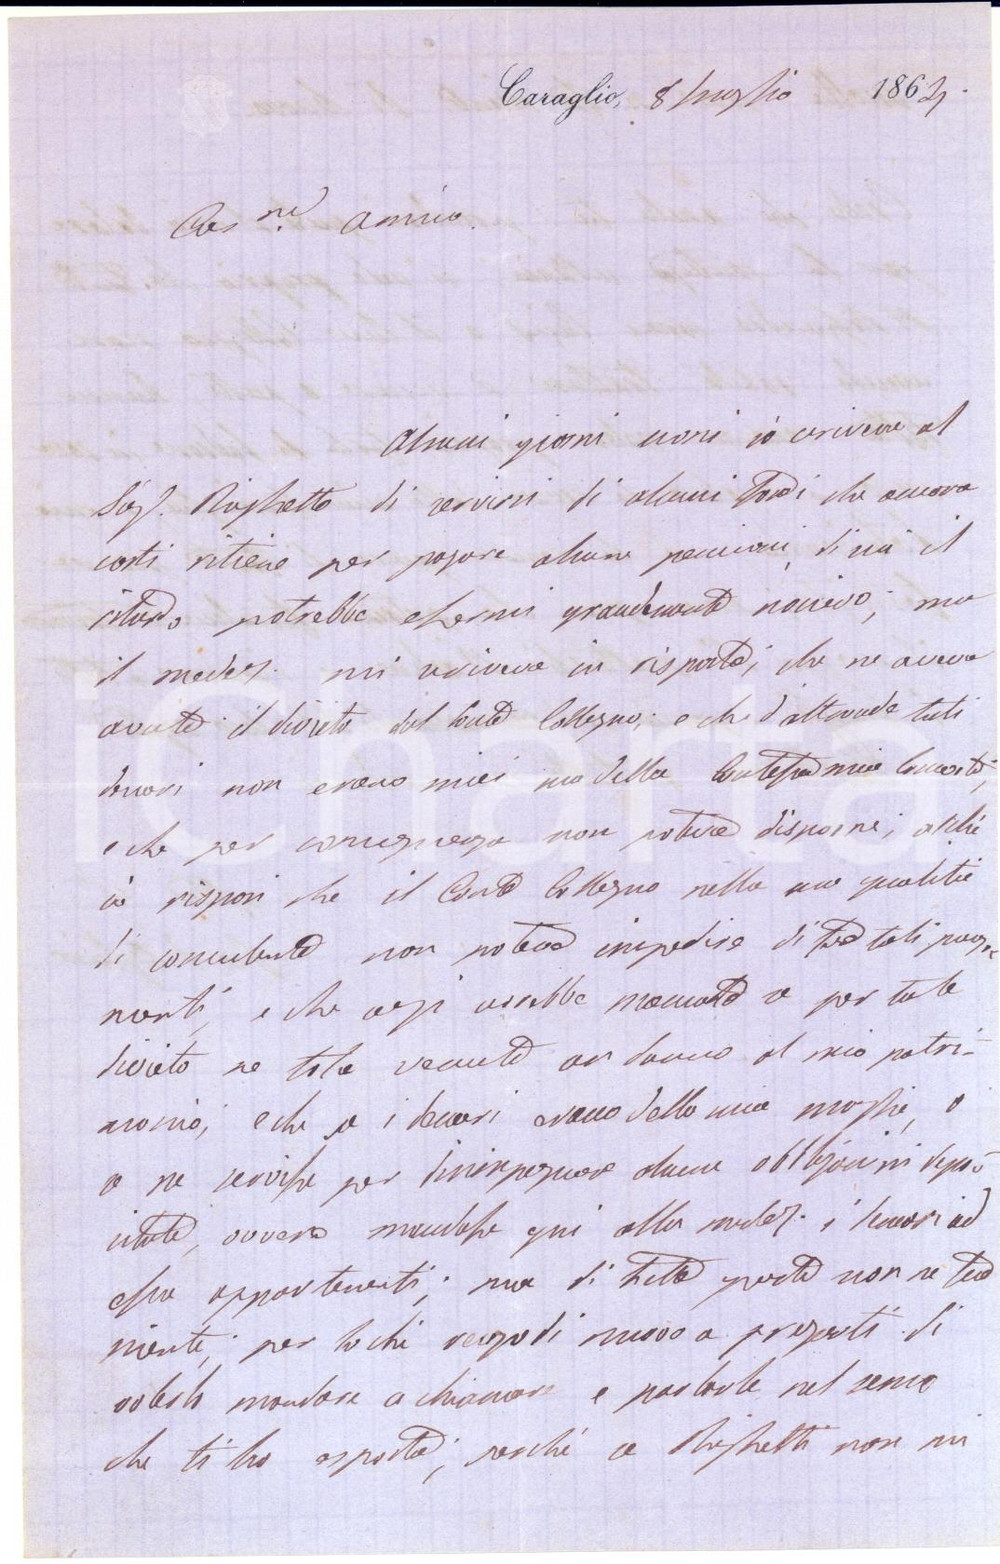 Caraglio, 8 luglio 1864.
Car.mo amico.
Alcuni giorni sono io scriveva al
Sig. Righetti di servirsi di alcuni fondi che ancora
costì ritiene per pagare alcune pensioni, di cui il
ritardo potrebbe essermi grandemente nocivo; ma
il medes. mi scriveva in risposta, che ne aveva
avuto il divieto dal Conte Collegno; e che d'altronde tali
denari non erano miei ma della Contessa mia Consorte,
e che per conseguenza non poteva disporne; al che
io risposi che il Conte Collegno nella sua qualità
di consulente non poteva impedire di tali paga-
menti, e che egli sarebbe se per tale
divieto ne fosse venuto un danno al mio patri-
monio; e che se i denari erano della mia moglie, o
se ne servisse per disimpegnare alcune obbligazioni depo-
sitate, ovvero mandasse qui alla medes. i denari ad
essa appartenenti; ma di tutto questo non se fece
niente, per lo che vengo di nuovo a pregarti di
volerlo mandare a chiamare e parlarle nel senso
che ti ho esposto; perché se Righetti non mi
iCharta